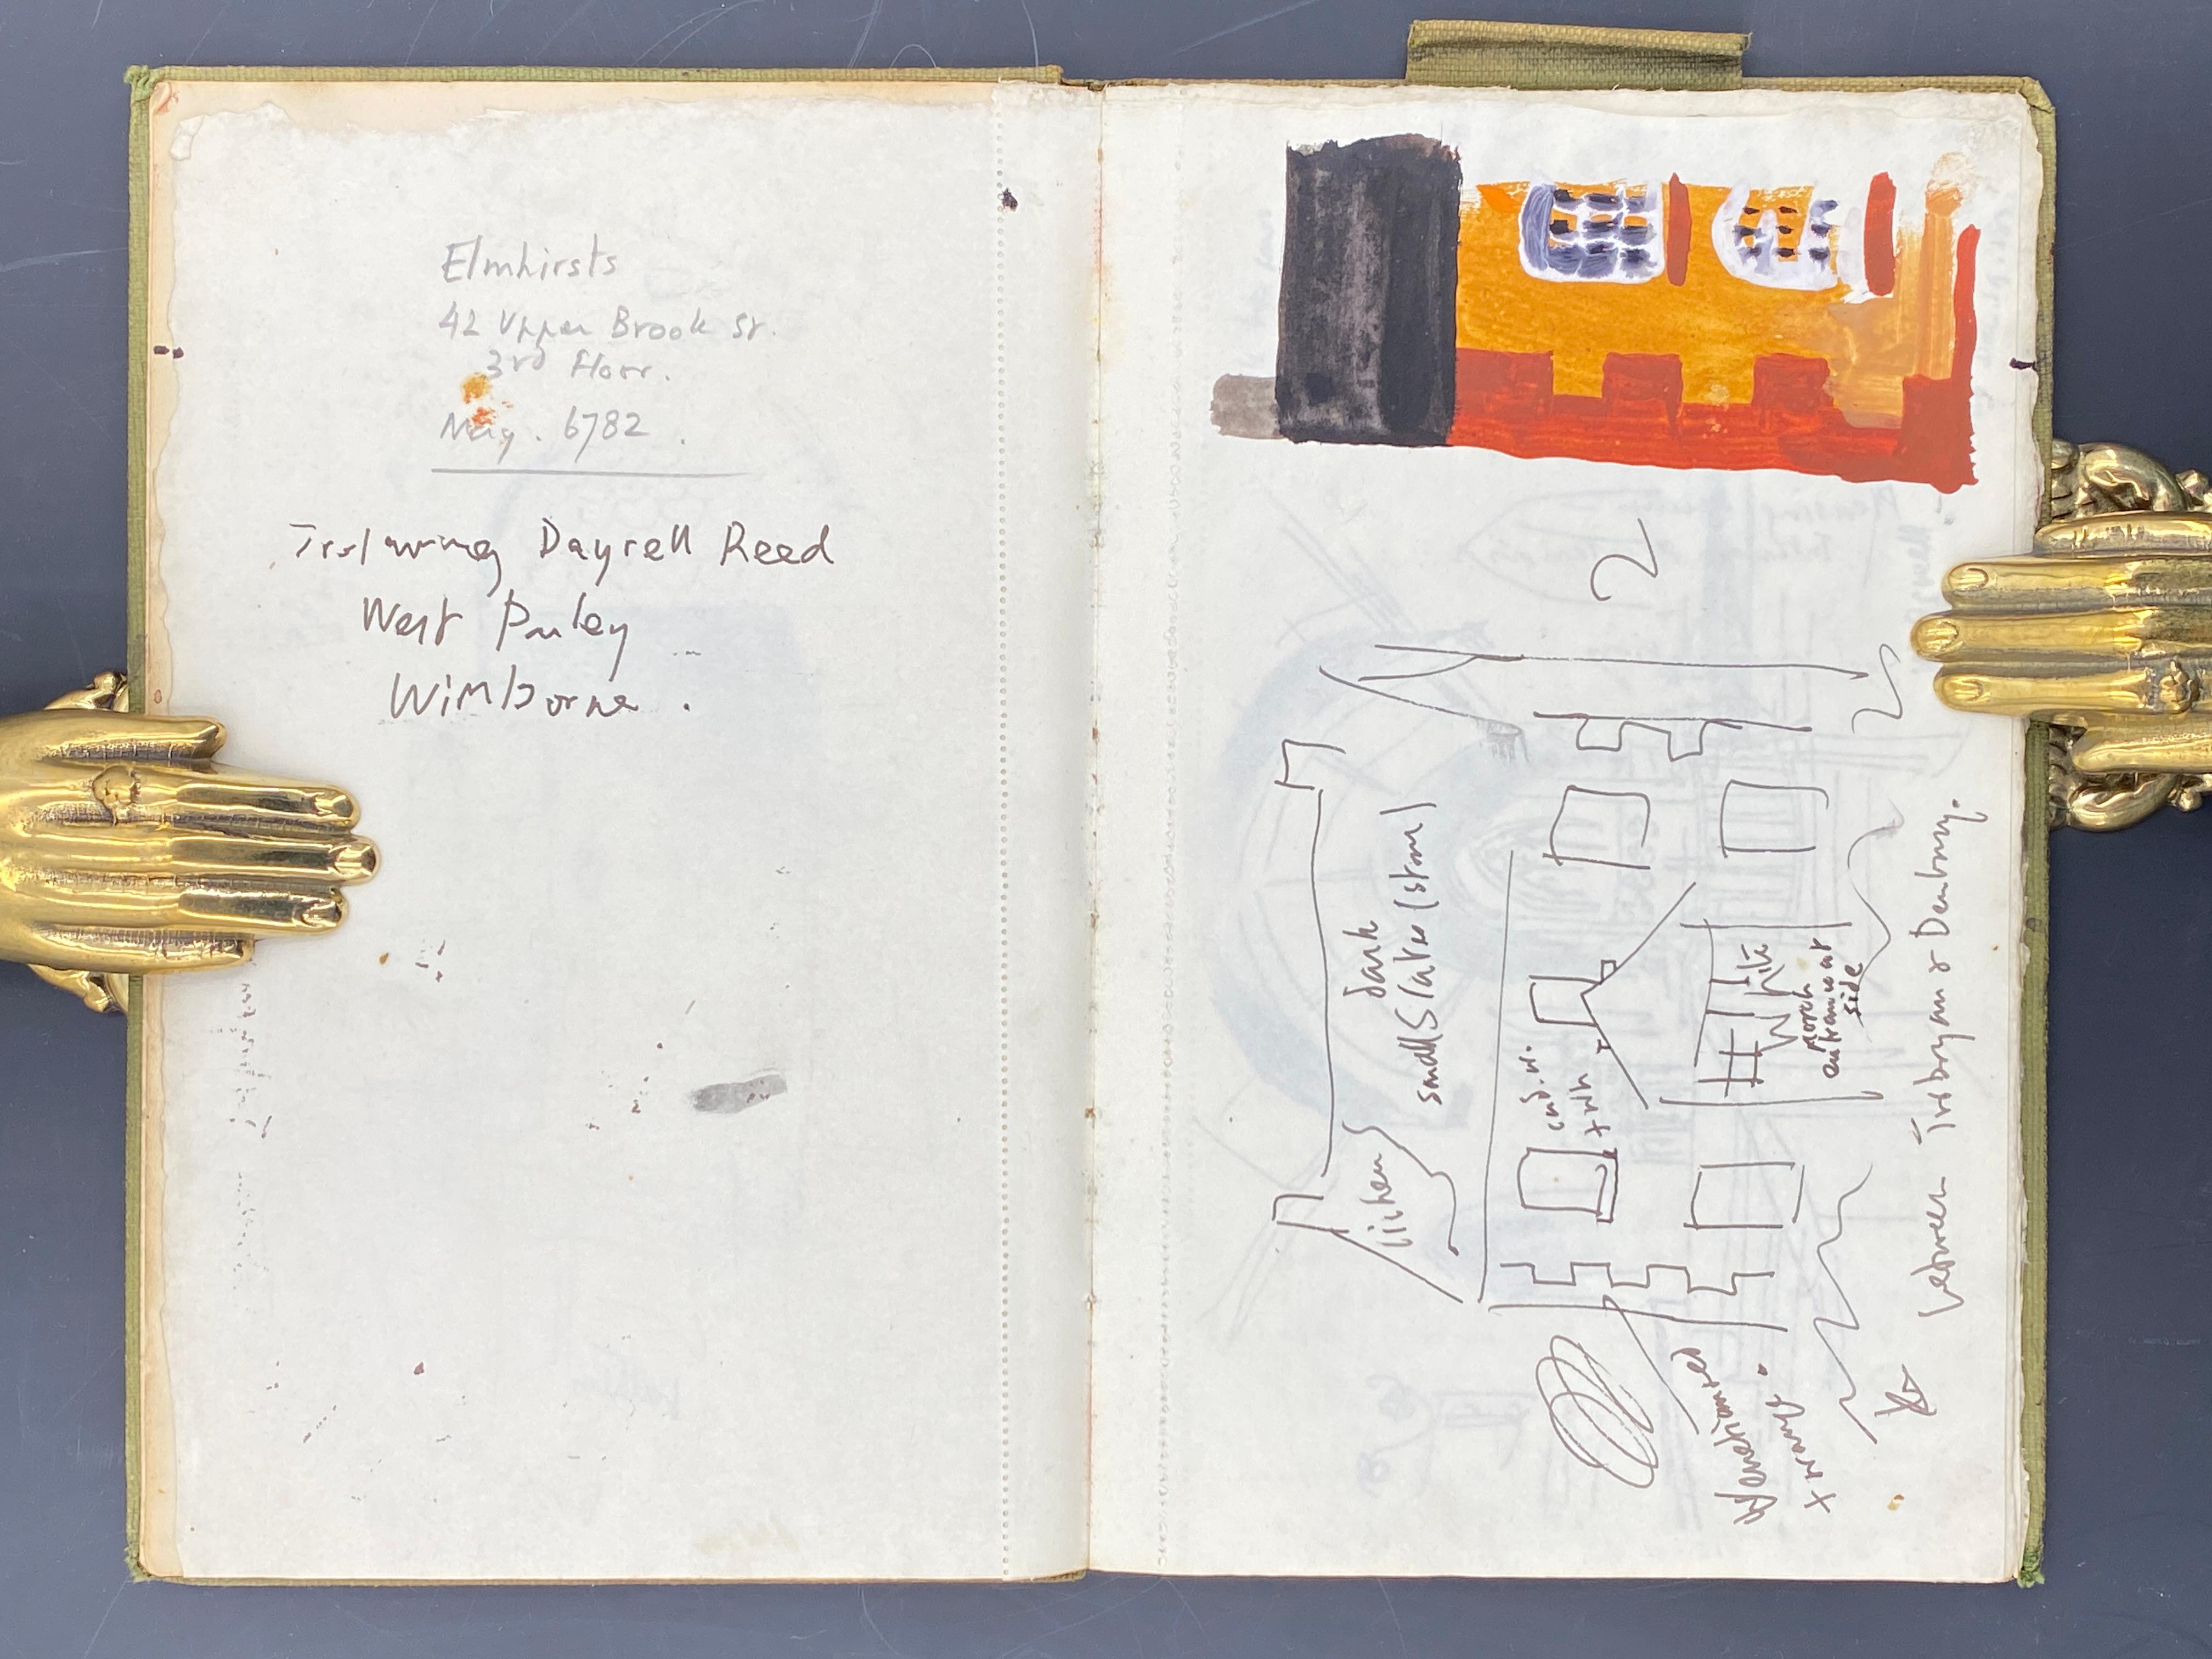 Elmhirsts
42 Upper Brook St.
3rd floor.
May. 6782.
Dayrell Reed
West Parley
Wimborne.
dark
small Slates (stone)
lichen
porch
entrance at
side
White
between Torbryan & Denbury.